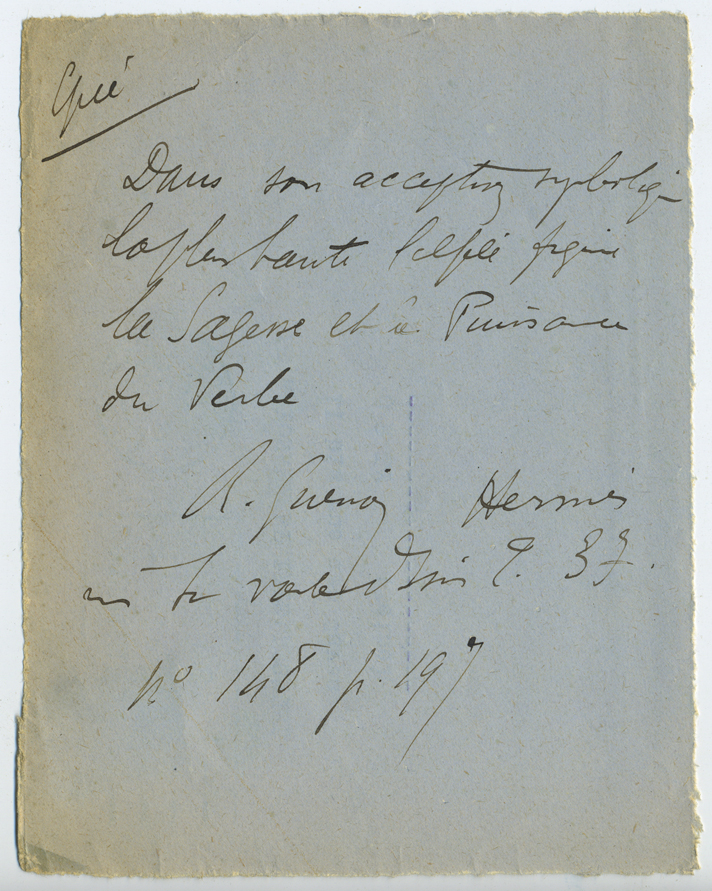 Epée
Dans son acception symboliq
la plus haute l'épée figure
la Sagesse et la Puissance
du Verbe
R. Guénon Hermès
in Le voile d'Isis T. 37.
n° 148 p. 197